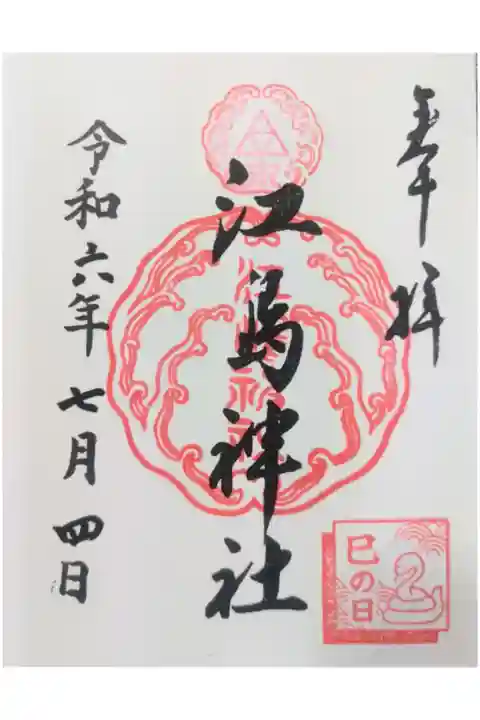 奉拝
江島神社
巳の日
令和六年 七月 四日